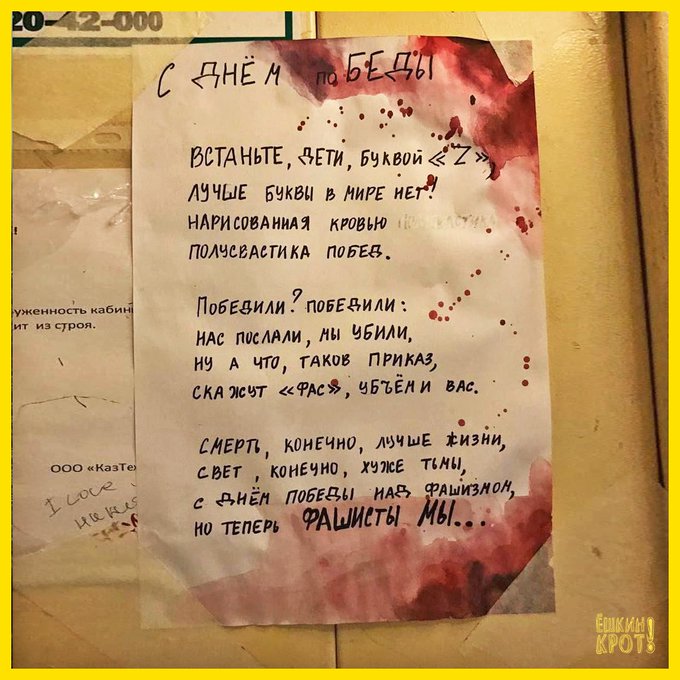 20-42-000
С ДНЁМ ПОБЕДЫ
ВСТАНЬТЕ, ДЕТИ, БУКВОЙ «Z»,
ЛУЧШЕ БУКВЫ В МИРЕ НЕТ!
НАРИСОВАННАЯ КРОВЬЮ
ПОЛУСВАСТИКА ПОБЕД.
ПОБЕДИЛИ? ПОБЕДИЛИ:
НАС ПОСЛАЛИ, МЫ УБИЛИ,
НУ А ЧТО, ТАКОВ ПРИКАЗ,
СКАЖУТ «ФАС», УБЪЁМ И ВАС.
СМЕРТЬ, КОНЕЧНО, ЛУЧШЕ ЖИЗНИ,
СВЕТ, КОНЕЧНО, ХУЖЕ ТЬМЫ,
С ДНЁМ ПОБЕДЫ НАД ФАШИЗМОМ,
НО ТЕПЕРЬ ФАШИСТЫ МЫ...
уженность кабин
ит из строя.
ООО «КазТех
I love
ЁШКИН
КРОТ!